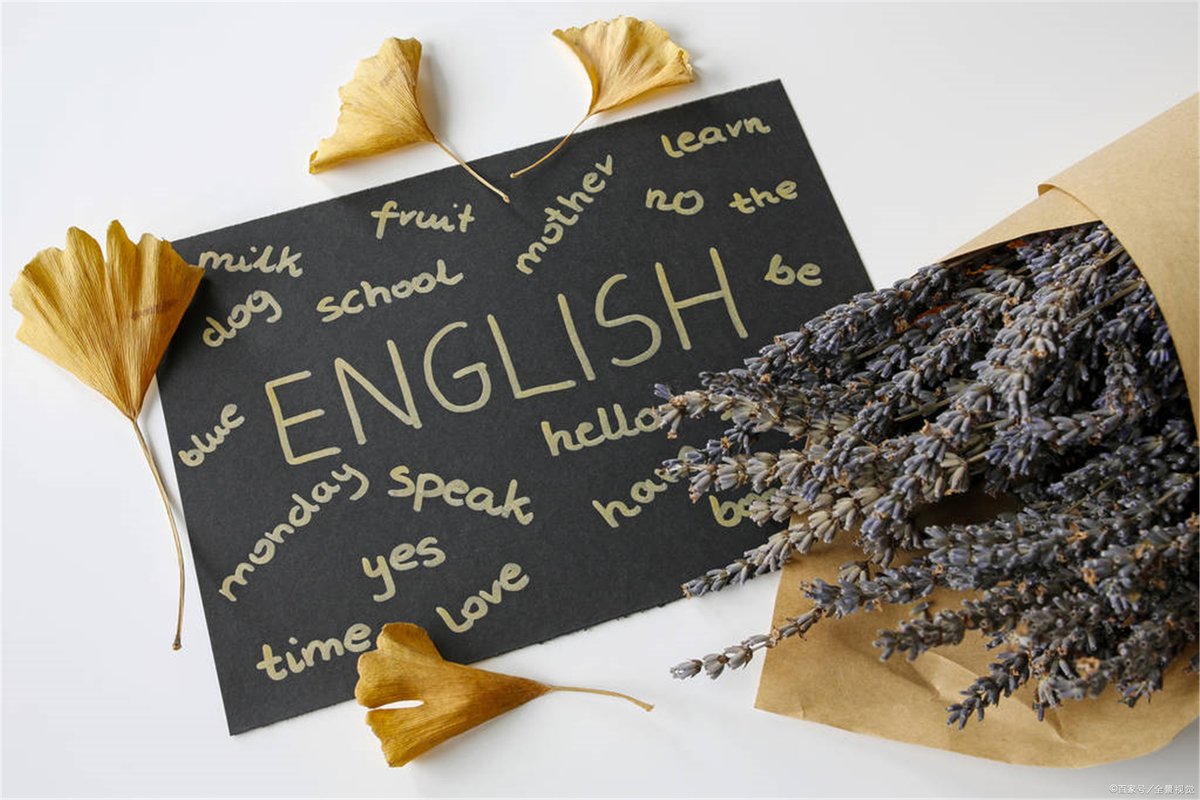 learn
fruit
mother
no
the
milk
school
be
dog
ENGLISH
blue
hello
speak
monday
yes
love
time
©百家号／全景视觉